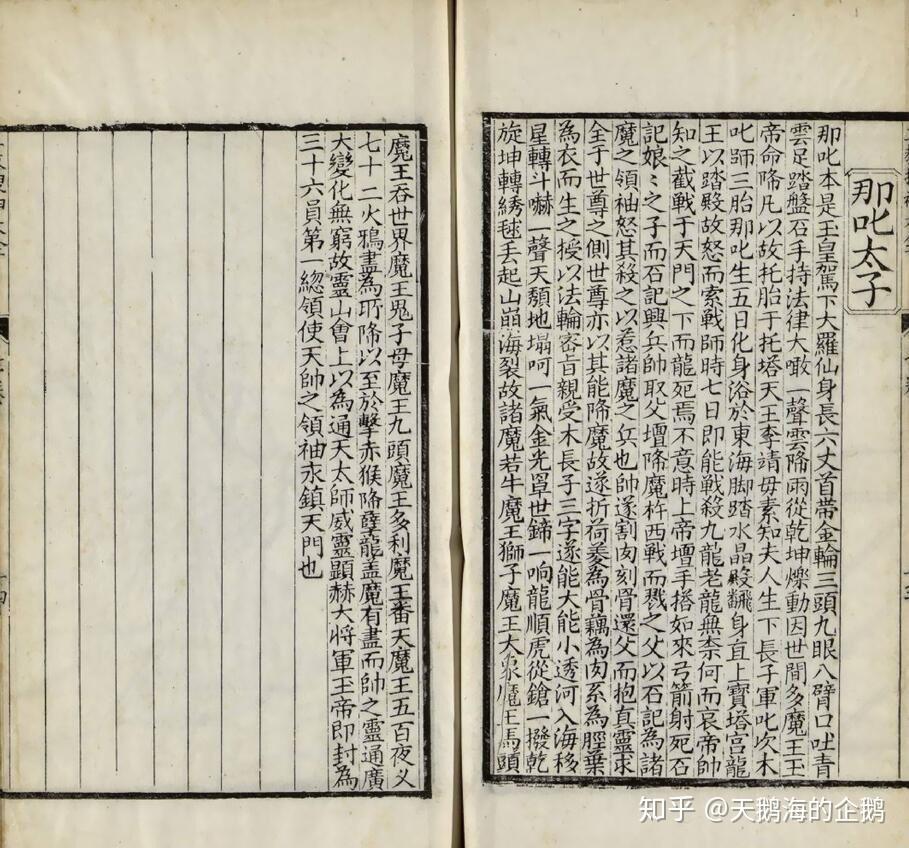 那叱太子
那叱本是玉皇駕下大羅仙身長六丈首帶金輪三頭九眼八臂口吐青
雲足踏盤石手持法律大噉一聲雲降雨從乾坤爍動因世間多魔王玉
帝命降凡以故托胎于托塔天王李靖母素知夫人生下長子軍叱次木
叱師三胎那叱生五日化身浴於東海脚踏水晶殿飜身直上寶塔宮龍
王以踏殿故怒而索戰師時七日即能戰殺九龍老龍無柰何而哀帝帥
知之截戰于天門之下而龍死焉不意時上帝壇手搭如來弓箭射死石
記娘〻之子而石記興兵帥取父壇降魔杵西戰而戮之父以石記為諸
魔之領袖怒其殺之以惹諸魔之兵也帥遂割肉刻骨還父而抱真靈求
全于世尊之側世尊亦以其能降魔故遂折荷菱為骨藕為肉系為脛葉
為衣而生之授以法輪宻旨親受木長子三字遂能大能小透河入海移
星轉斗嚇一聲天頹地塌呵一氣金光罩世鍗一响龍順虎從鎗一撥乾
旋坤轉綉毬丟起山崩海裂故諸魔若牛魔王獅子魔王大象魔王馬頭
魔王吞世界魔王鬼子母魔王九頭魔王多利魔王番天魔王五百夜乂
七十二火鴉盡為所降以至於擊赤猴降孽龍盖魔有盡而帥之靈通廣
大變化無窮故靈山會上以為通天太師威靈顯赫大將軍玉帝即封為
三十六員第一緫領使天帥之領袖永鎮天門也
知乎 @天鹅海的企鹅